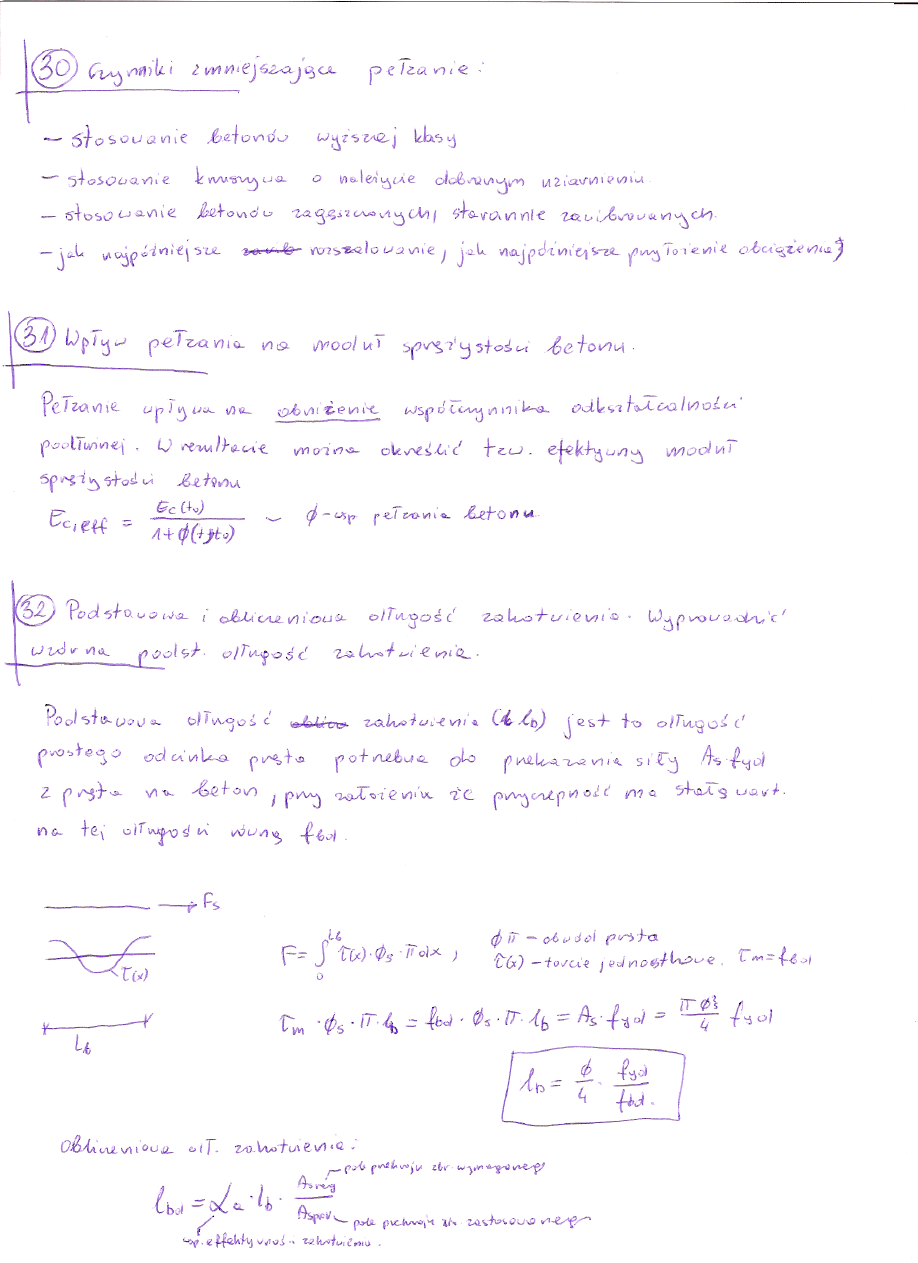 30 Czynniki zmniejszające pełzanie:
- stosowanie betonów wyższej klasy
- stosowanie kruszywa o należycie dobranym uziarnieniu.
- stosowanie betonów zagęszczonych, starannie zawibrowanych.
- jak najpóźniejsze rozszalowanie, jak najpóźniejsze przyłożenie obciążenia
31 Wpływ pełzania na moduł sprężystości betonu.
Pełzanie wpływa na obniżenie współczynnika odkształcalności
podłużnej. W rezultacie można określić tzw. efektywny moduł
sprężystości betonu
Ec,eff = Ec(t0) / 1+φ(t,t0) - φ-wsp pełzania betonu
32 Podstawowa i obliczeniowa długość zakotwienia. Wyprowadzić
wzór na podst. długość zakotwienia.
Podstawowa długość zakotwienia (lb) jest to długość
prostego odcinka pręta potrzebna do przekazania siły As·fyd
z pręta na beton, przy założeniu że przyczepność ma stałą wart.
na tej długości równą fbd.
→ Fs
τ(x)
F = ∫₀^Lb τ(x)·φs·π dx ; φπ - obwód pręta
τ(x) - tarcie jednostkowe. τm = fbd
Lb
τm·φs·π·lb = fbd·φs·π·lb = As·fyd = πφs²/4 fyd
lb = φ/4 · fyd/fbd.
Obliczeniowa dł. zakotwienia:
pole przekroju zbr. wymaganego
lbd = αa·lb· As,req / As,prov
pole przekroju zbr. zastosowanego
wsp. effektywność. zakotwienia.